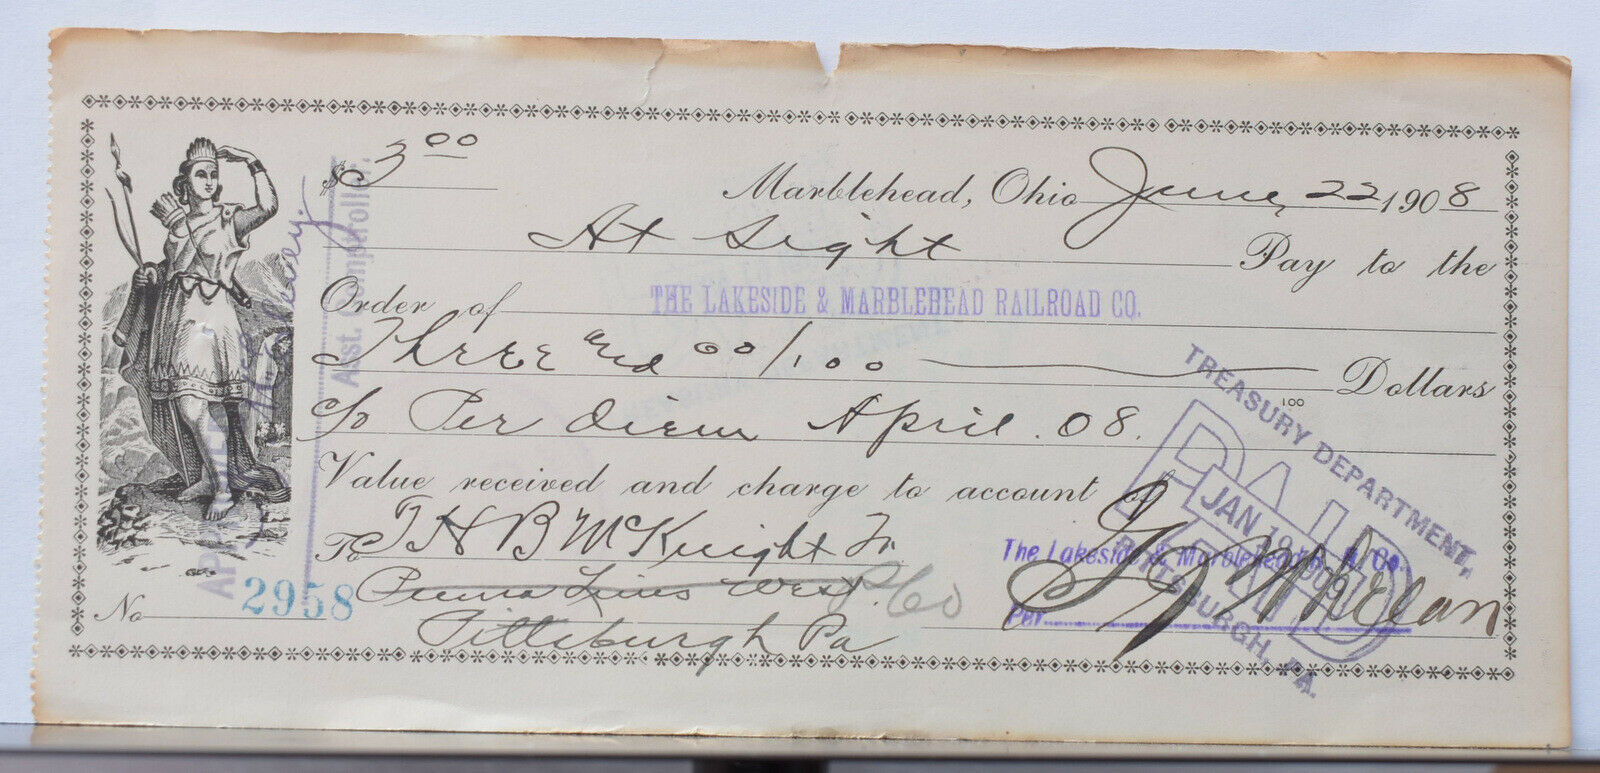 $ 3 00
Marblehead, Ohio June 22 1908
At Sight Pay to the
Order of THE LAKESIDE & MARBLEHEAD RAILROAD CO.
Three and 00/100 Dollars
100
c/o Per diem April. 08.
Value received and charge to account of
To T H B McKnight Tr.
Penna Lines West. P60
Pittsburgh Pa
No 2958
The Lakeside & Marblehead R. R. Co.
Per
TREASURY DEPARTMENT,
PAID
JAN 19 1909
PITTSBURGH, PA.
Asst. Comptroller.